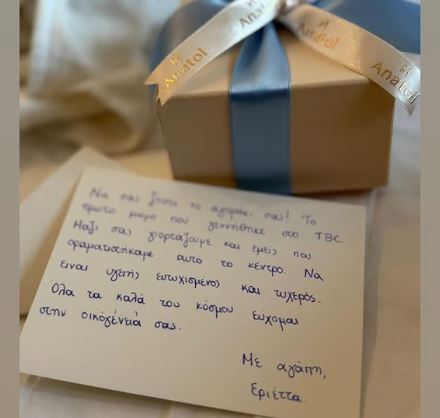 Anatol
Anatol
Anatol
Anatol
Να σας ζήσει το αγοράκι σας! Το
πρώτο μωρό που γεννήθηκε στο TBC.
Μαζί σας γιορτάζουμε και εμείς που
οραματιστήκαμε αυτό το κέντρο. Να
είναι υγιής ευτυχισμένος και τυχερός.
Όλα τα καλά του κόσμου εύχομαι
στην οικογένειά σας.
Με αγάπη,
Εριέττα.